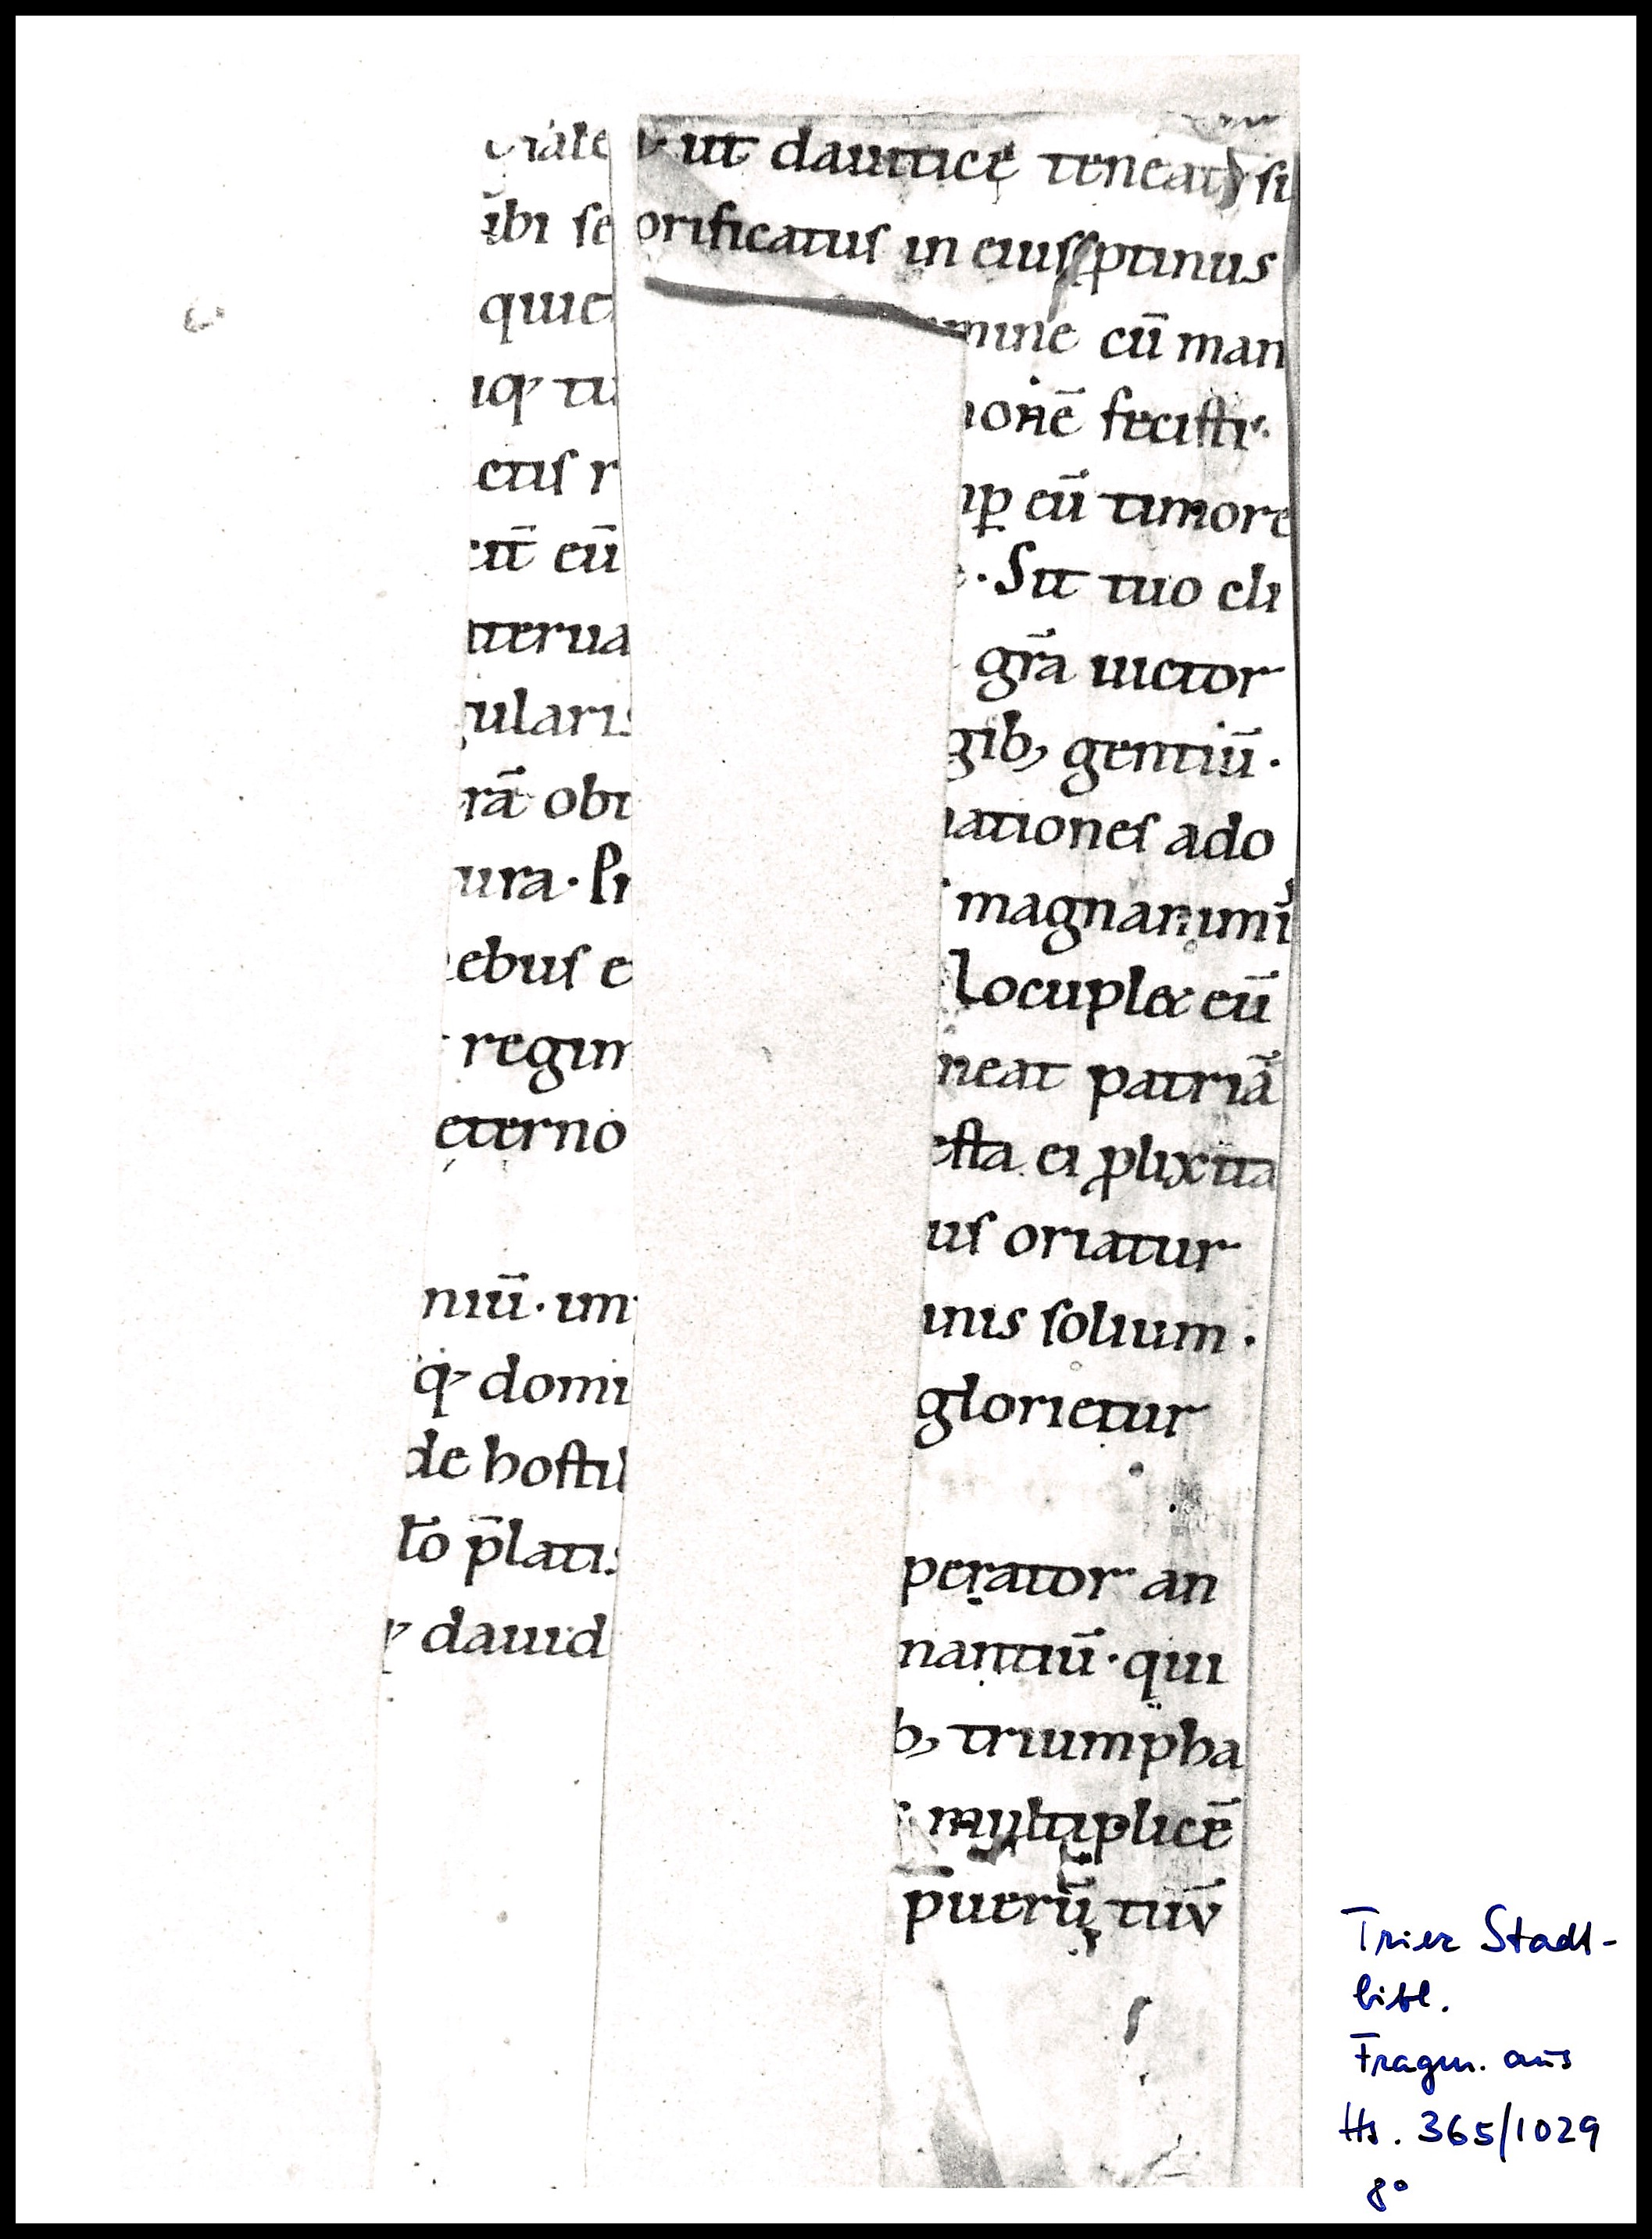 iale
ibi se
quiet
iqȝ tu
ctis r
cit̄ eū
aterua
gularis
rā obt
ura · Pr
ebus e
regim
eterno
niū · im
qȝ domi
de hostil
lo p̄latis
dauid
ut dauiticę teneat᷑ si
orificatus in eius ꝓtinus
mine cū man
ionē fecisti·
ꝑ cū timore
· Sit tuo cli
gr̄a uictor
gibꝫ gentiū ·
nationes ado
magnanim᷒
locuplex eū
neat patriā
esta ei ꝓlixita
us oriatur
inis solium ·
glorietur
perator an
nantiū · qui
bꝫ triumpha
multiplicē
puerū tuū
Trier Stadt-
bibl.
Fragm. aus
Hs. 365/1029
8°